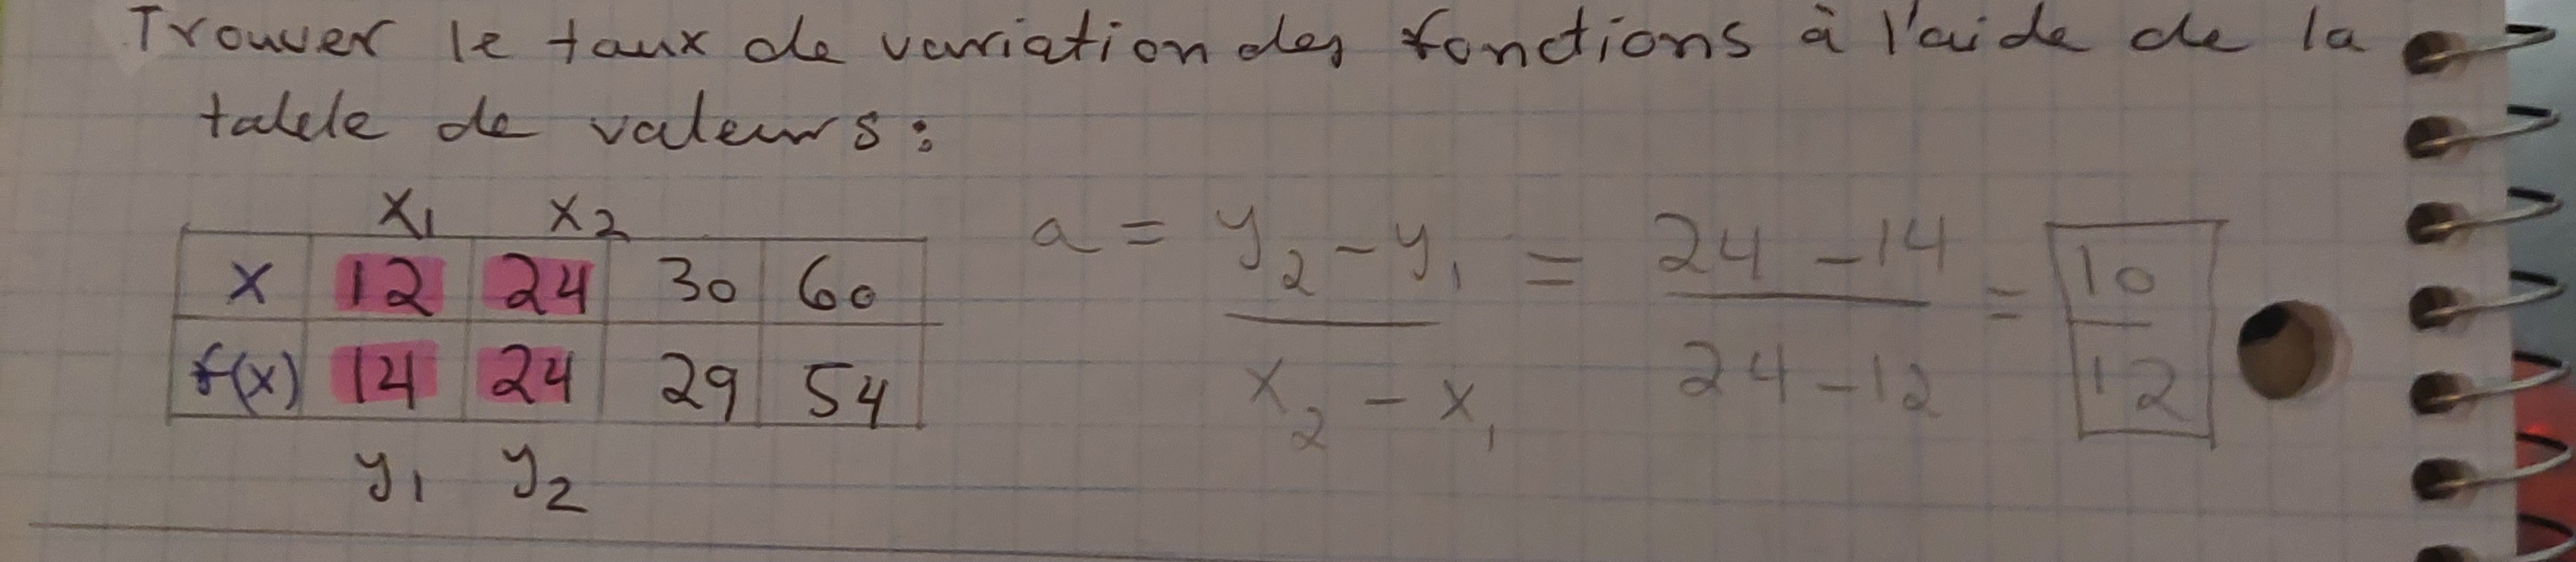 Trouver le taux de variation des fonctions à l'aide de la
table de valeurs:
x₁ x₂
x 12 24 30 60
f(x) 14 24 29 54
y₁ y₂
a = y₂ - y₁ / x₂ - x₁ = 24 - 14 / 24 - 12 = 10 / 12